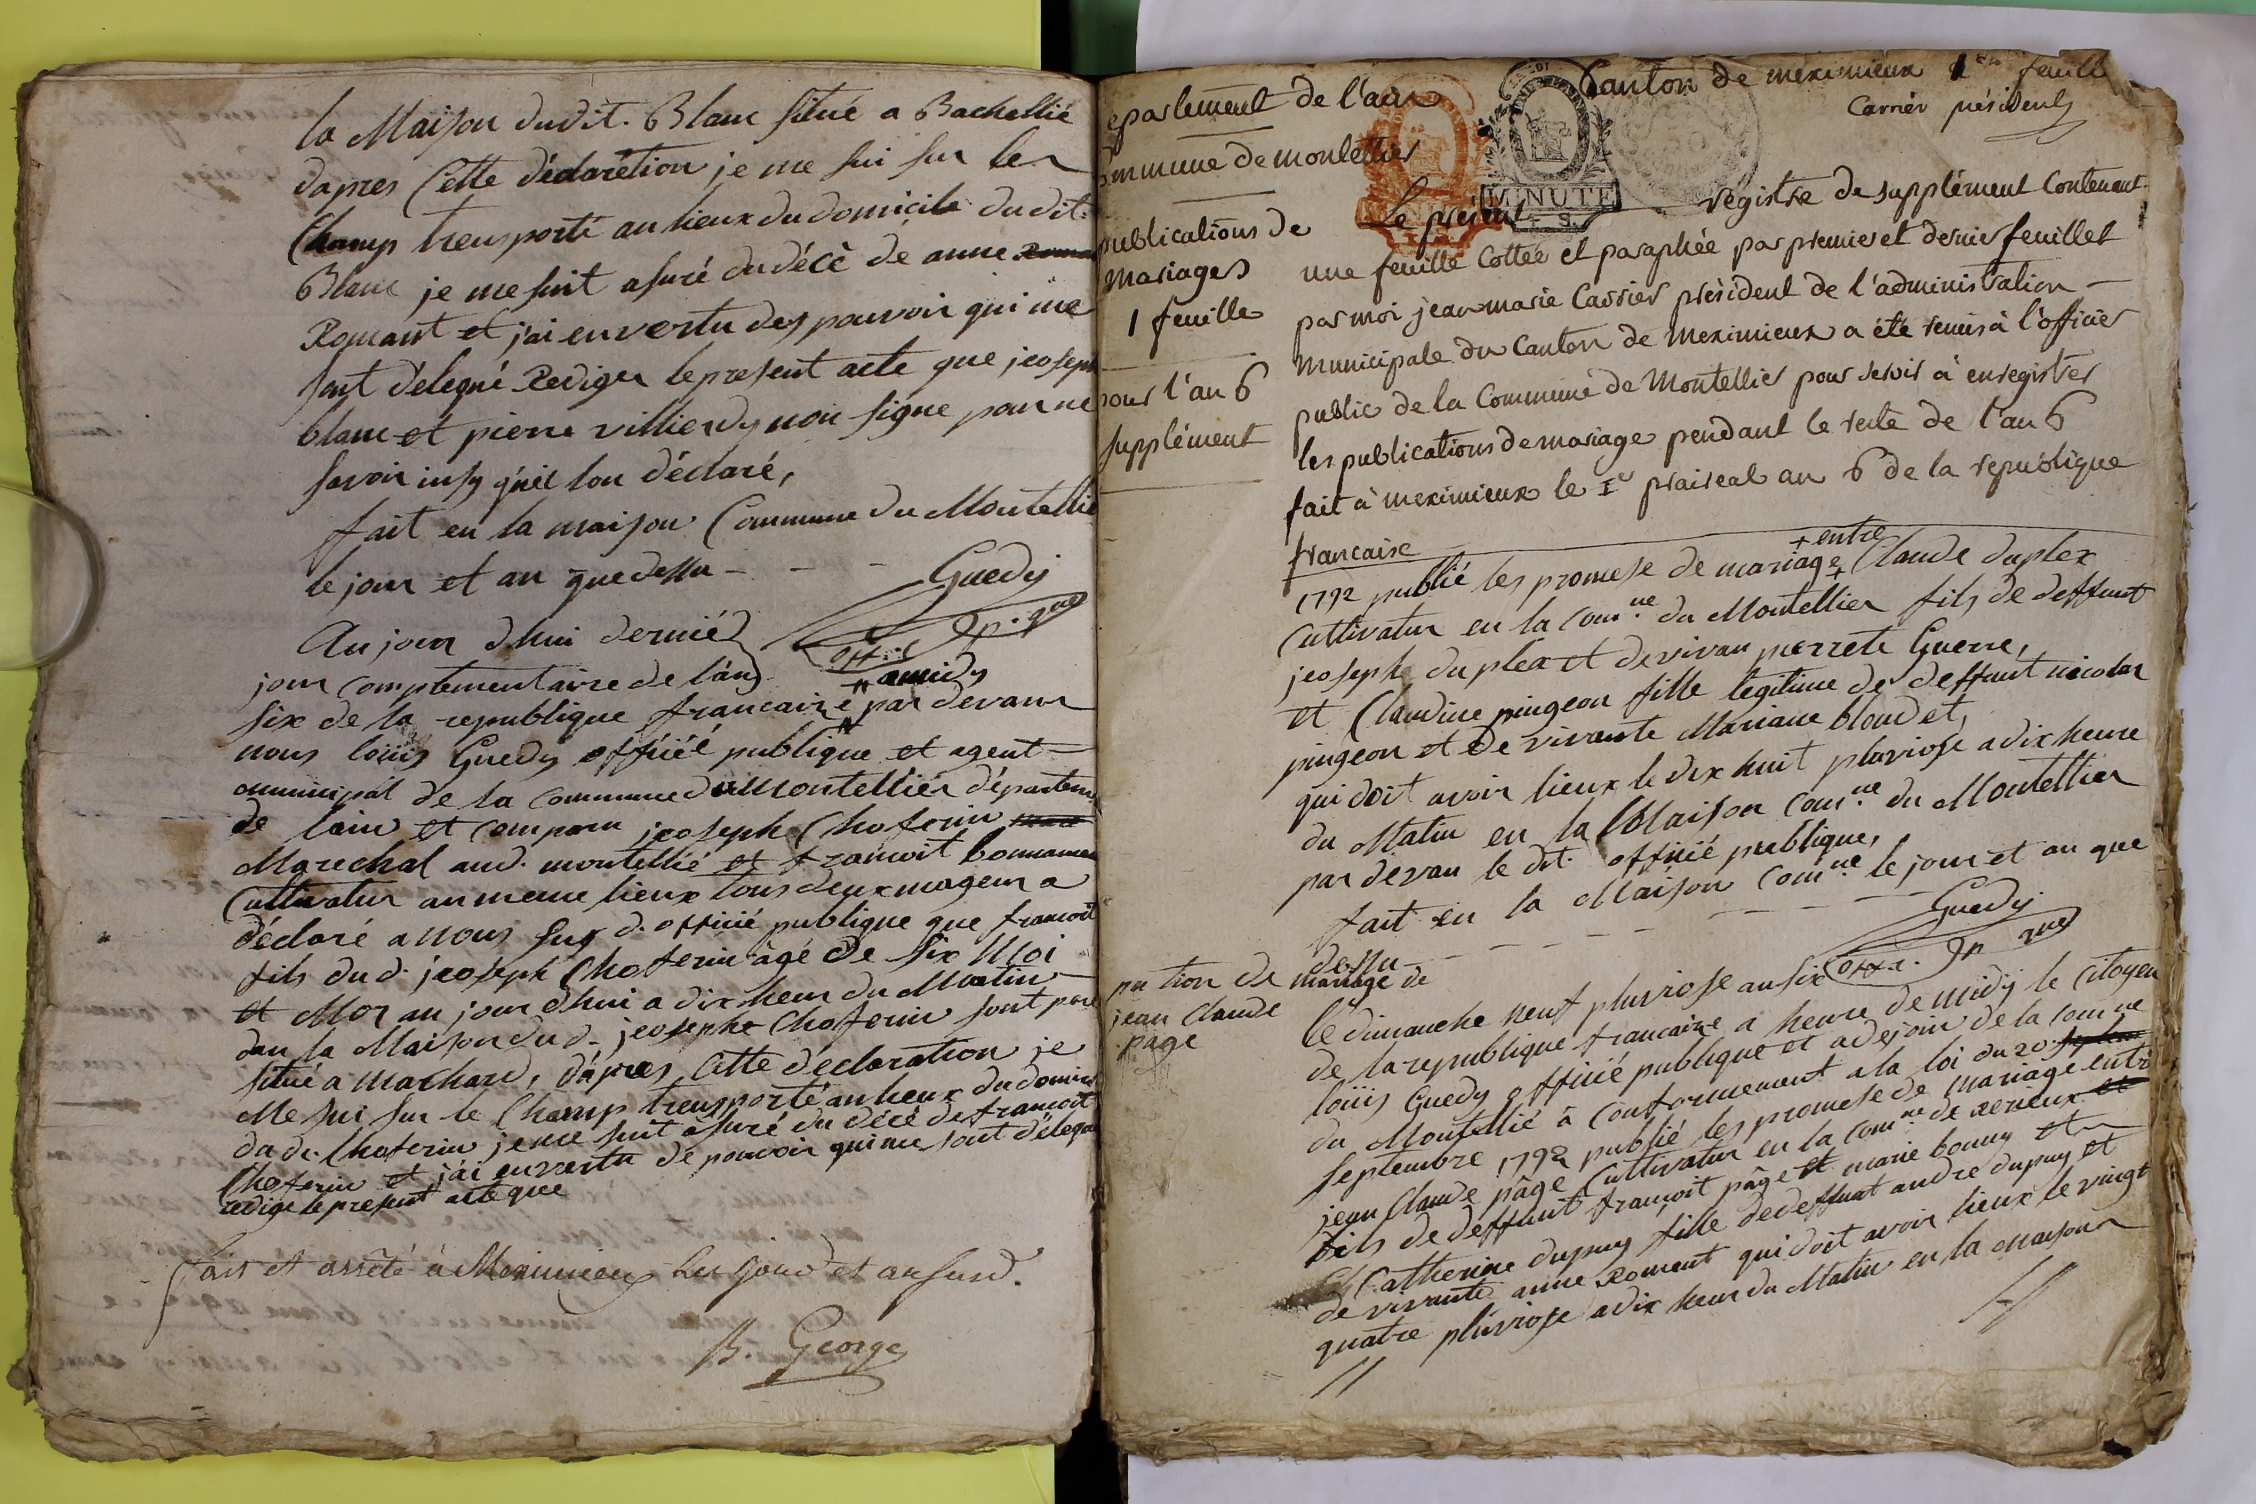 la Maison dudit. Blanc situé a Bachellié
dapres Cette déclarétion je me sui sur ler
Champ trensporté au lieux du domicile dudit.
Blanc je me suit asuré du décè de anne
Romant et j'ai en vertu des pouvoir qui me
sont délegué Rediger le present acte que jeoseph
blanc et pierre villierdy non signe pour ne
savoir insy qu'il lon déclaré,
fait en la maison Commune du Montellié
le jour et an que dessu - - -
Guedy
off. p. que
Au jour d'hui dernié
jour complementaire de l'an
six de la republique francaize par devant
amidy
nous louis Guedy officié publique et agent
municipál de la commune du Montelliér départem
de lain et comparu jeoseph Choferin
Marechal aud. montellié et francoit bonnamen
Cultivatur au meme lieux tous deux mageur a
déclaré a nous sus d. officié publique que francoit
fils du d. jeoseph Choferin âgé de six Moi
et Mor au jour dhui a dix heur du Matin
dan la Maison du d. jeosephe Choferin
situé a Machard, dápres Cette déclaration je
Me sui sur le Champ trensporté au lieux du domici
du d. Choferin je me suit asuré du décé de francoit
Choferin et j'ai en vertu de pouvoir qui me sont délegu
redige le present acte que
fait et arrêté à Meximieux Les jour et an susd.
B. George
epartement de l'ain
Canton de meximieux 1ere feuill
Carrier président
ommune de montellier
MINUTE
publications de
mariages
1 feuille
pour l'an 6
supplément
Le present registre de supplément Contenant
une feuille Cottée et paraphée par premier et dernier feuillet
par moi jean marie Carrier président de l'administration
municipale du Canton de Meximieux a été remis à l'officier
public de la Commune de Montellier pour servir à enregistrer
les publications de mariage pendant le reste de l'an 6
fait à meximieux le 1er prairéal an 6 de la republique
francaise
1792 publié les promese de mariage + entre Claude duplex
Cultivatur en la comne du Montellier fils de deffunt
jeoseph duplex et de vivan perrete Guerre,
et Claudine pingeon fille legitime de deffunt nicolas
pingeon et de vivante Mariane blondet,
qui doit avoir lieux le dix huit pluviose a dix heure
du Matin en la Maison comne du Montellier
par devan le dit. officié publique,
fait en la Maison comne le jour et an que
dessu - - - -
Guedy
off. p que
tion de mariage de
jean Claude
page
le dimanche neuf pluviose an six
de la republique francaize a heure de midy le citoyen
louis Guedy officié publique et adejoin de la comne
du Montellié à conformement a la loi du 20
septembre 1792 publié les promese de mariage entre
jean Claude pâge Cultivatur en la comne de rerieux
fils de deffunt francoit pâge et marie bonny et
Catherine dupuy fille de deffunt andre dupuy et
de vivante anne Roment qui doit avoir lieux le vingt
quatre pluviose a dix heur du Matin en la Maison